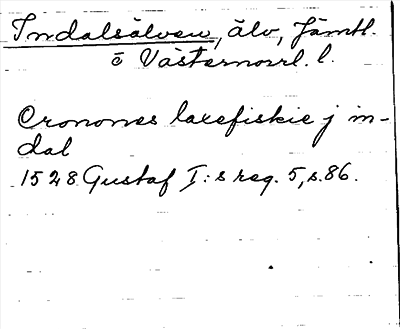 Indalsälven, älv, Jämtl.
o Västernorrl. l.
Cronones laxefiskie j in-
dal
1528 Gustaf I:s reg. 5, s. 86.